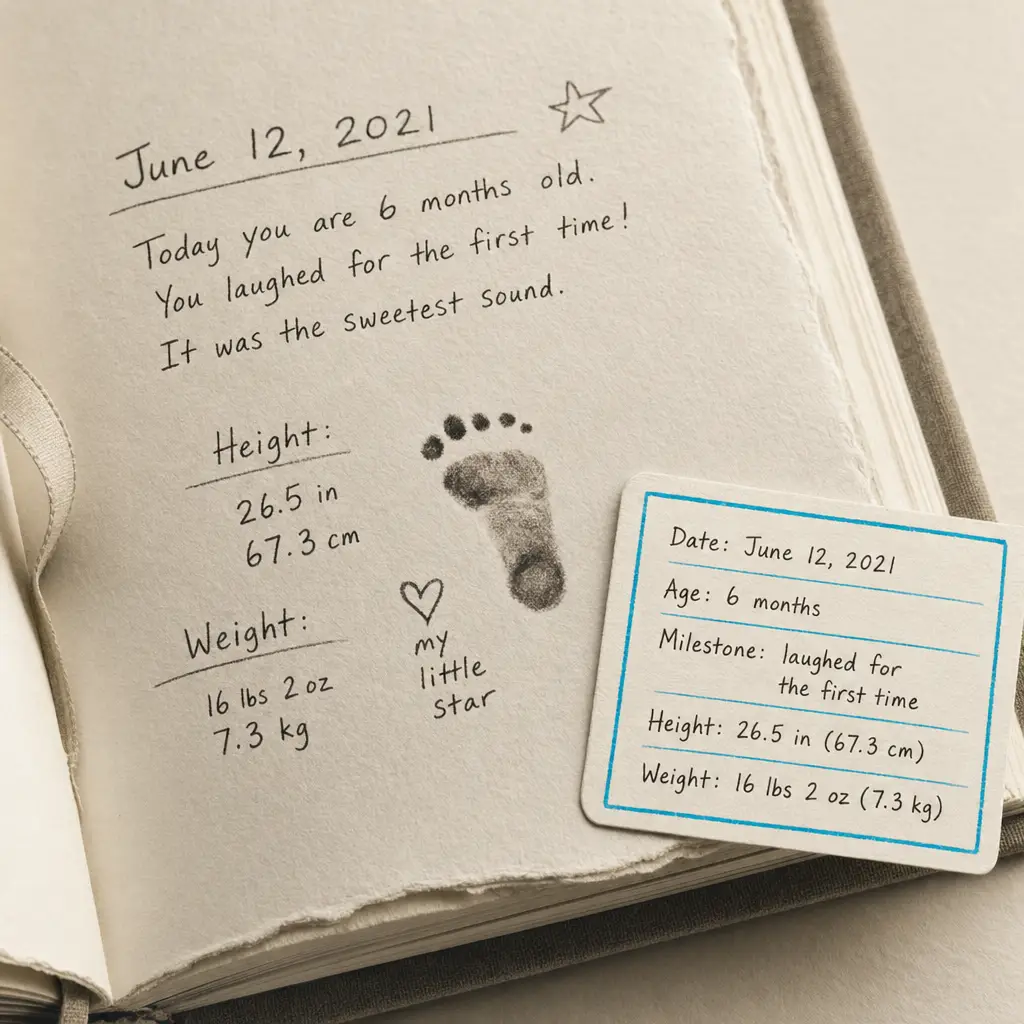 June 12, 2021
Today you are 6 months old.
You laughed for the first time!
It was the sweetest sound.
Height:
26.5 in
67.3 cm
Weight:
16 lbs 2 oz
7.3 kg
my
little
star
Date: June 12, 2021
Age: 6 months
Milestone: laughed for
the first time
Height: 26.5 in (67.3 cm)
Weight: 16 lbs 2 oz (7.3 kg)